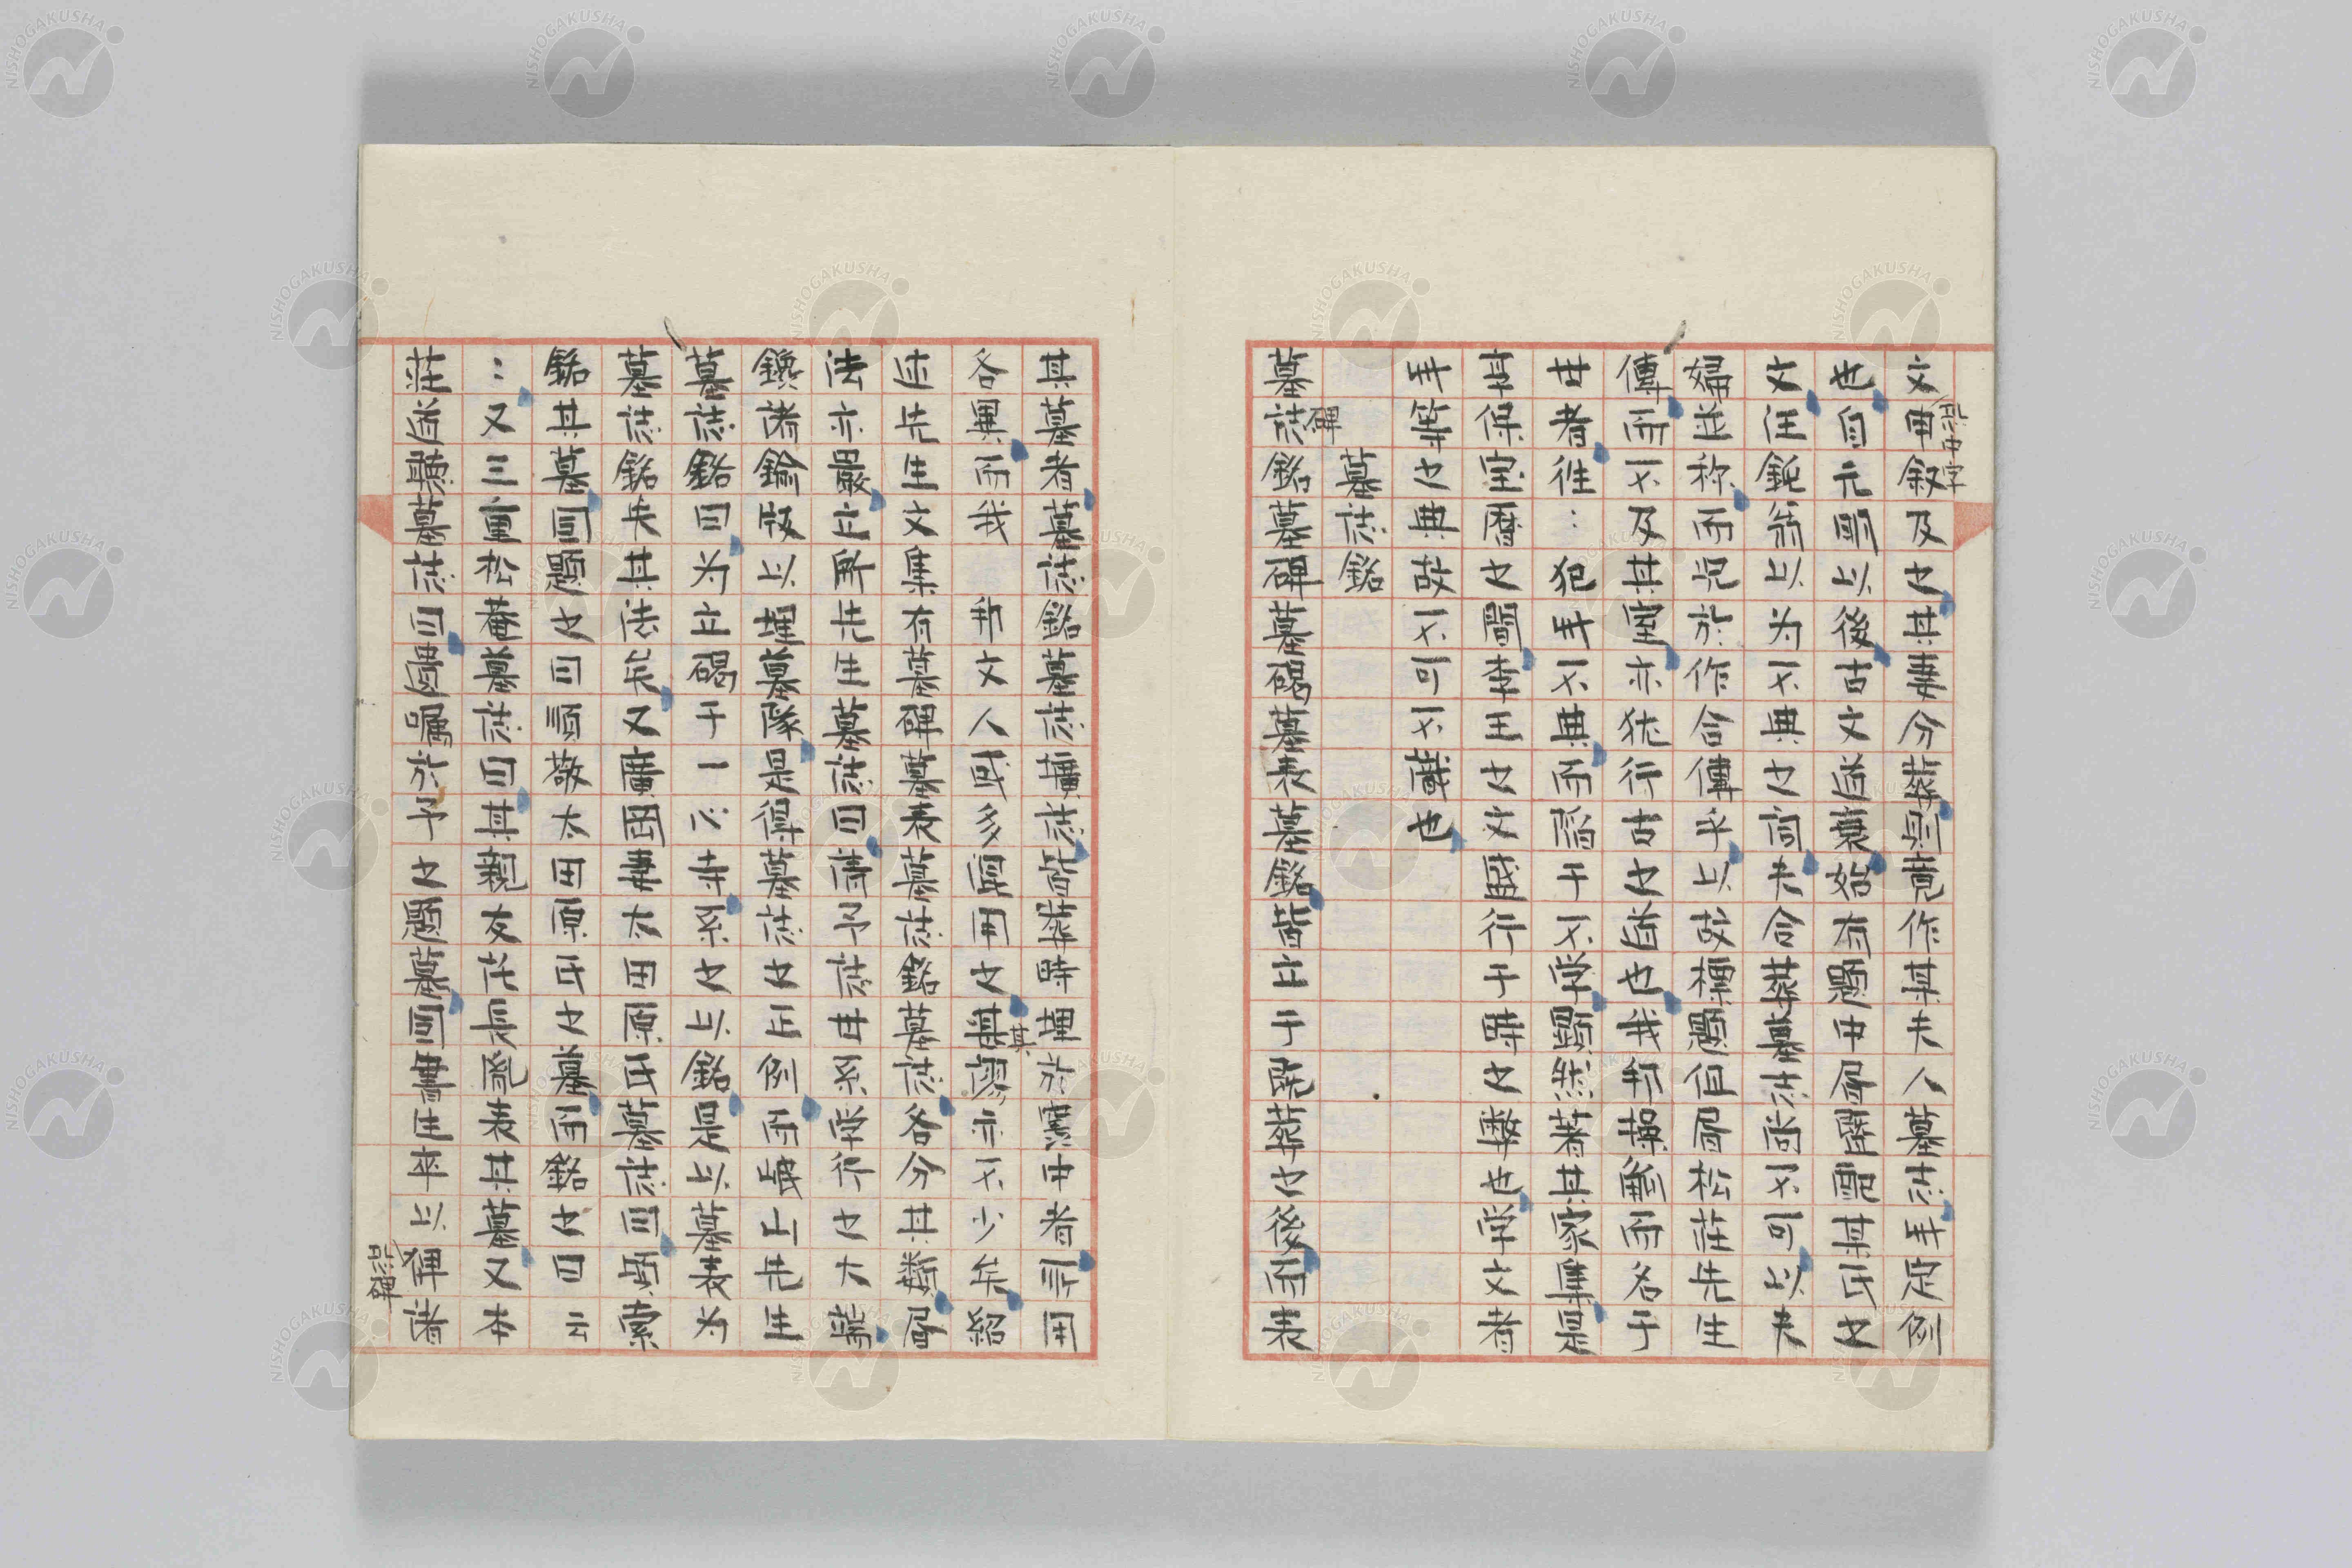 文毋叙及之其妻分葬則竟作某夫人墓誌毋定例
也自元明以後古文道衰始有題中居羼配某氏之
文汪鈍翁以为不典之甚夫合葬墓誌尚不可以夫
婦並称而况於作合傳乎以故標題但曰松莊先生
傳而不及其室亦猶行古之道也我邦操觚而名于
世者往〻犯毋不典而陷于不學題然著其家集是
其保宝曆之嗣李王之文厭行于世之弊也學文者
毋等之典故不可不講也
墓誌銘
墓誌銘墓碑墓碣墓表墓銘皆立于既葬之後而表
其墓者墓誌銘墓誌壙誌皆葬時埋於壙中者言用
各異而我 邦文人或多混用之其謬亦不少矣紹
述先生文集有墓碑墓表墓誌銘墓誌各分其類眉
法亦嚴正所先生墓誌曰請予誌世系學行之大槩
鑱諸錀版以埋墓隊是得墓誌之正例而碑上先生
墓誌銘曰为立碣于一心寺系之以銘是以墓表为
墓誌銘失其法矣又廣函妻太田原氏墓誌曰臨窆
銘其墓回題之曰順敬太田原氏之墓而銘之曰云
〻又三重松菴墓誌曰其親友荒長胤表其墓又本
莊道聴墓誌曰屡嘱於予之題墓回書生卒以碑諸
NISHOGAKUSHA